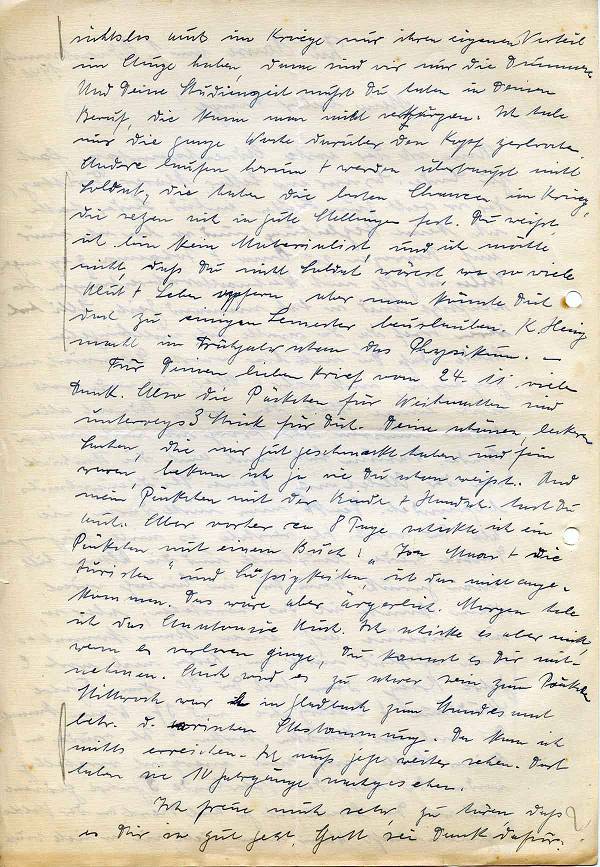 nichts als auch im Kriege nur ihren eigenen Vorteil
im Auge haben, dann sind wir nur die Dummen.
Und Deine Studienzeit mußt Du haben in Deinem
Beruf, die kann man nicht verkürzen. Ich habe
mir die ganze Woche darüber den Kopf zerbrochen.
Andere laufen herum + werden überhaupt nicht
Soldat, die haben die besten Chancen im Krieg,
die setzen sich in gute Stellungen fest. Du weißt
ich bin kein Materialist, und ich möchte
nicht, daß Du nicht Soldat wärest, wo so viele
Blut + Leben opfern, aber man könnte Dich
doch zu einigen Semester beurlauben. K. Heinz
macht im Frühjahr schon das Physikum. —
Für Deinen lieben Brief vom 24. 11. vielen
Dank. Also die Päckchen für Weihnachten sind
unterwegs 3 Stück für Dich. Deine schönen, leckeren
Sachen, die mir gut geschmeckt haben und fein
waren, bekam ich ja, wie Du schon weißt. Und
mein Päckchen mit der + Handsch. hast Du
auch. Aber vorher ca 8 Tage schickte ich ein
Päckchen mit einem Buch: „ + die
Juristen" und Süßigkeiten, ist das nicht ange-
kommen. Das wäre aber ärgerlich. Morgen hole
ich das Buch. Ich schicke es aber nicht,
wenn es verloren ginge, Du kannst es Dir mit-
nehmen. Auch wird es zu schwer sein zum Päckchen
Mittwoch war ich in Gladbach zum Standesamt
betr. d. arischen Abstammung. Da kam ich
nichts erreichen. Ich muß jetzt weiter sehen. Dort
haben sie 10 Jahrgänge nachgesehen.
Ich freue mich sehr, zu hören, daß
es Dir so gut geht, Gott sei Dank dafür.